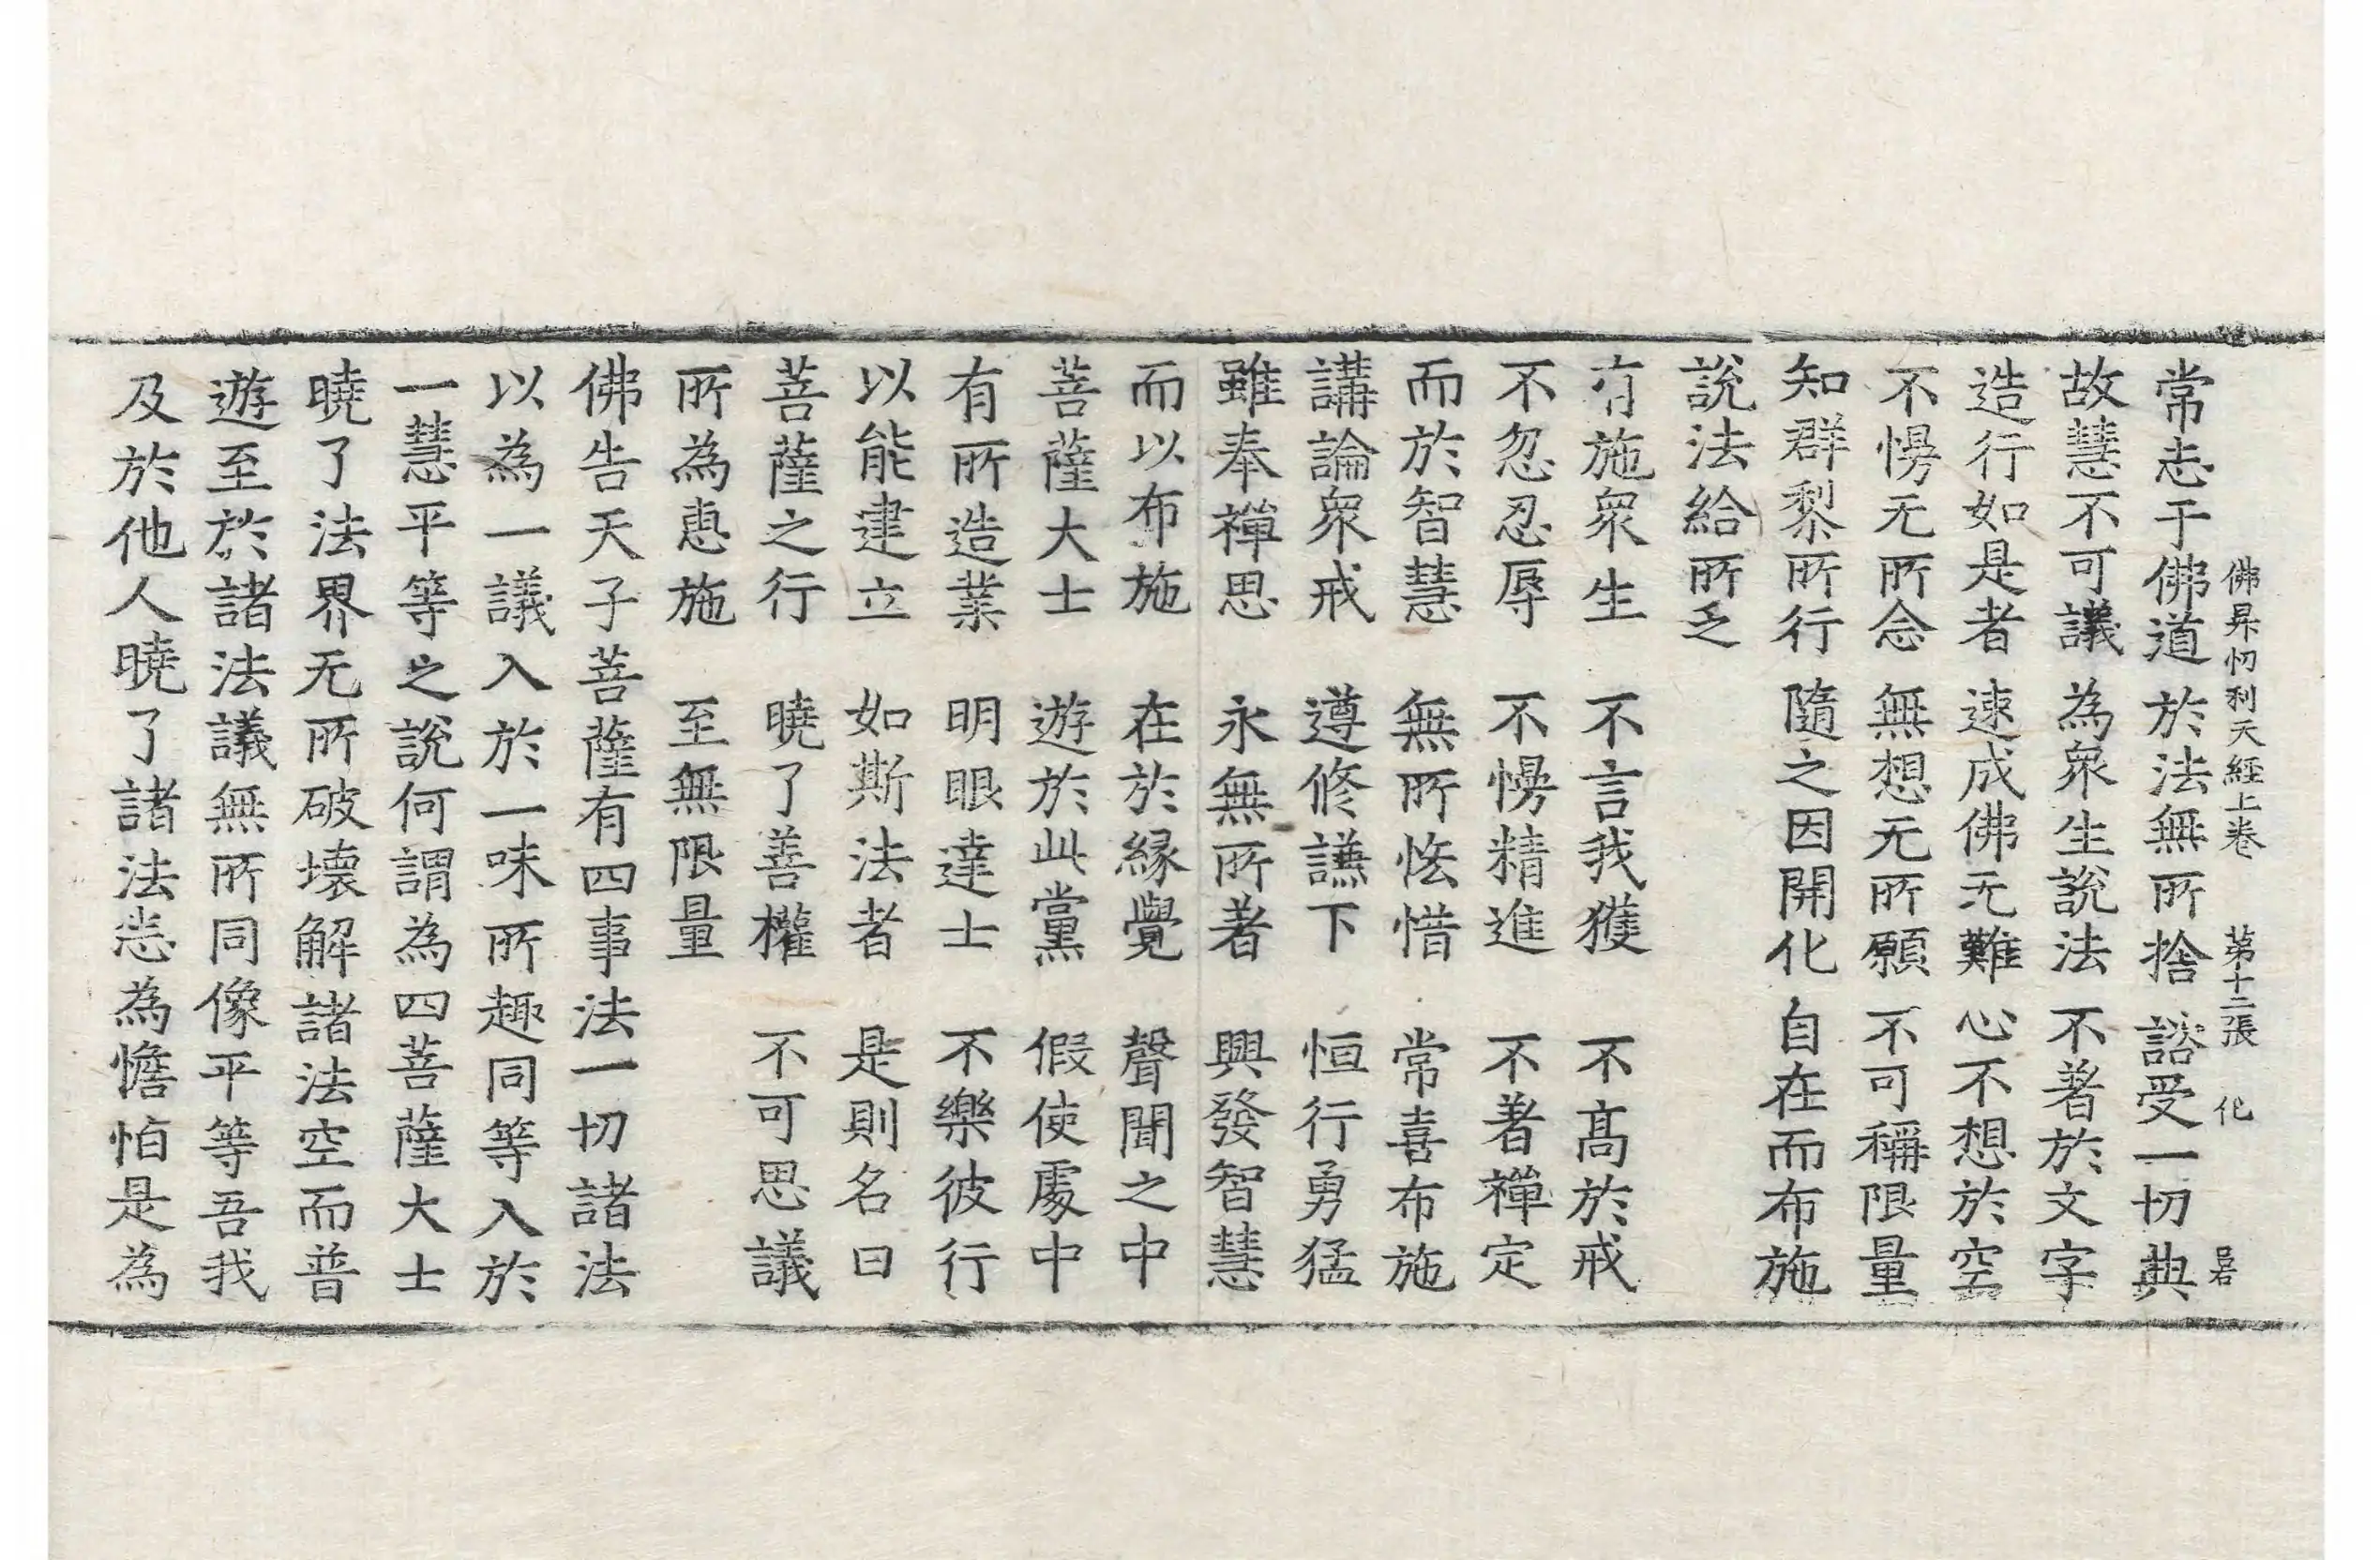 佛昇忉利天經上卷 第十二張 化
常志于佛道 於法無所捨 諮受一切典
故慧不可議 為衆生說法 不著於文字
造行如是者 速成佛无難 心不想於空
不愣无所念 無想无所願 不可稱限量
知群黎所行 隨之因開化 自在而布施
說法給所乏
有施衆生 不言我獲 不髙於戒
不忽忍辱 不愣精進 不著禪定
而於智慧 無所悋惜 常喜布施
講論衆戒 遵修謙下 恒行勇猛
雖奉禪思 永無所著 興發智慧
而以布施 在於縁覺 聲聞之中
菩薩大士 遊於此黨 假使處中
有所造業 明眼達士 不樂彼行
以能建立 如斯法者 是則名曰
菩薩之行 曉了善權 不可思議
所為惠施 至無限量
佛告天子菩薩有四事法一切諸法
以為一議入於一味所趣同等入於
一慧平等之說何謂為四菩薩大士
曉了法界无所破壞解諸法空而普
遊至於諸法議無所同像平等吾我
及於他人曉了諸法悉為憺怕是為